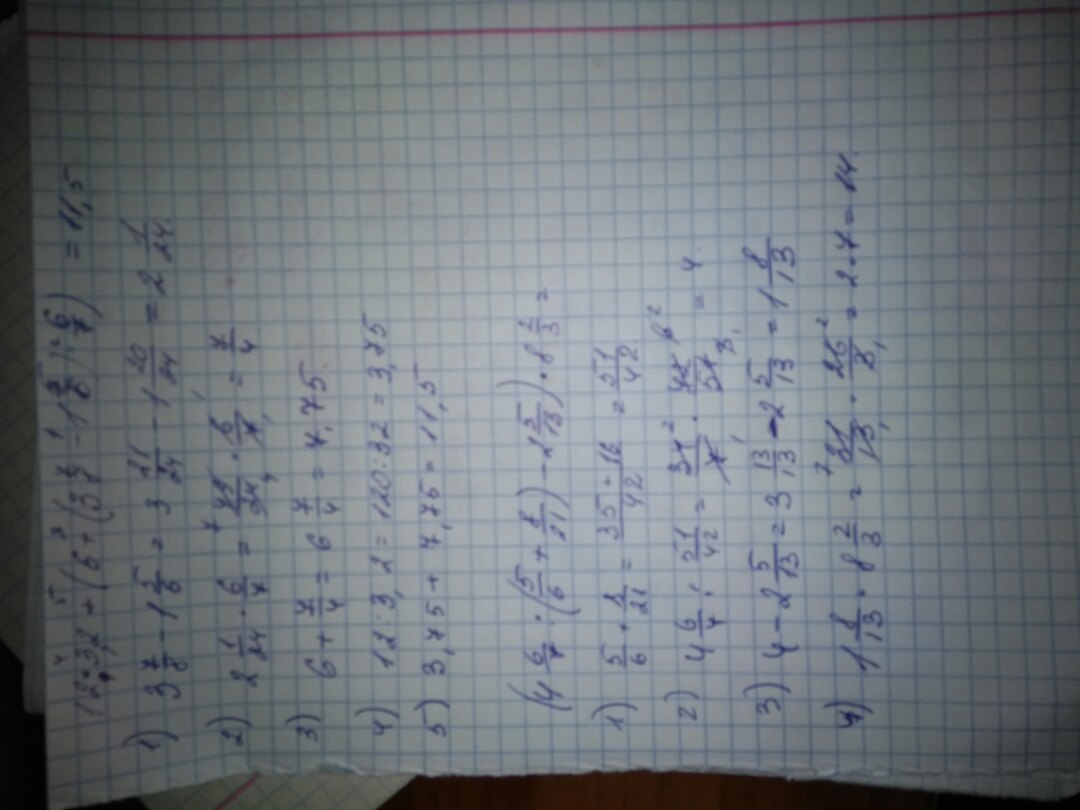 12:3,2 + (6 + (3 7/8 - 1 5/6) · 6/7) = 11,5
1) 3 7/8 - 1 5/6 = 3 21/24 - 1 20/24 = 2 1/24.
2) 2 1/24 · 6/7 = 49/24 · 6/7 = 7/4
3) 6 + 7/4 = 6 7/4 = 7,75.
4) 12:3,2 = 120:32 = 3,75
5) 3,75 + 7,75 = 11,5
(4 6/7 : (5/6 + 8/21) - 2 5/13) · 8 2/3 =
1) 5/6 + 8/21 = 35 + 16/42 = 51/42
2) 4 6/7 : 51/42 = 34/7 · 42/51 = 4.
3) 4 - 2 5/13 = 3 13/13 - 2 5/13 = 1 8/13
4) 1 8/13 · 8 2/3 = 21/13 · 26/3 = 2·7 = 14.